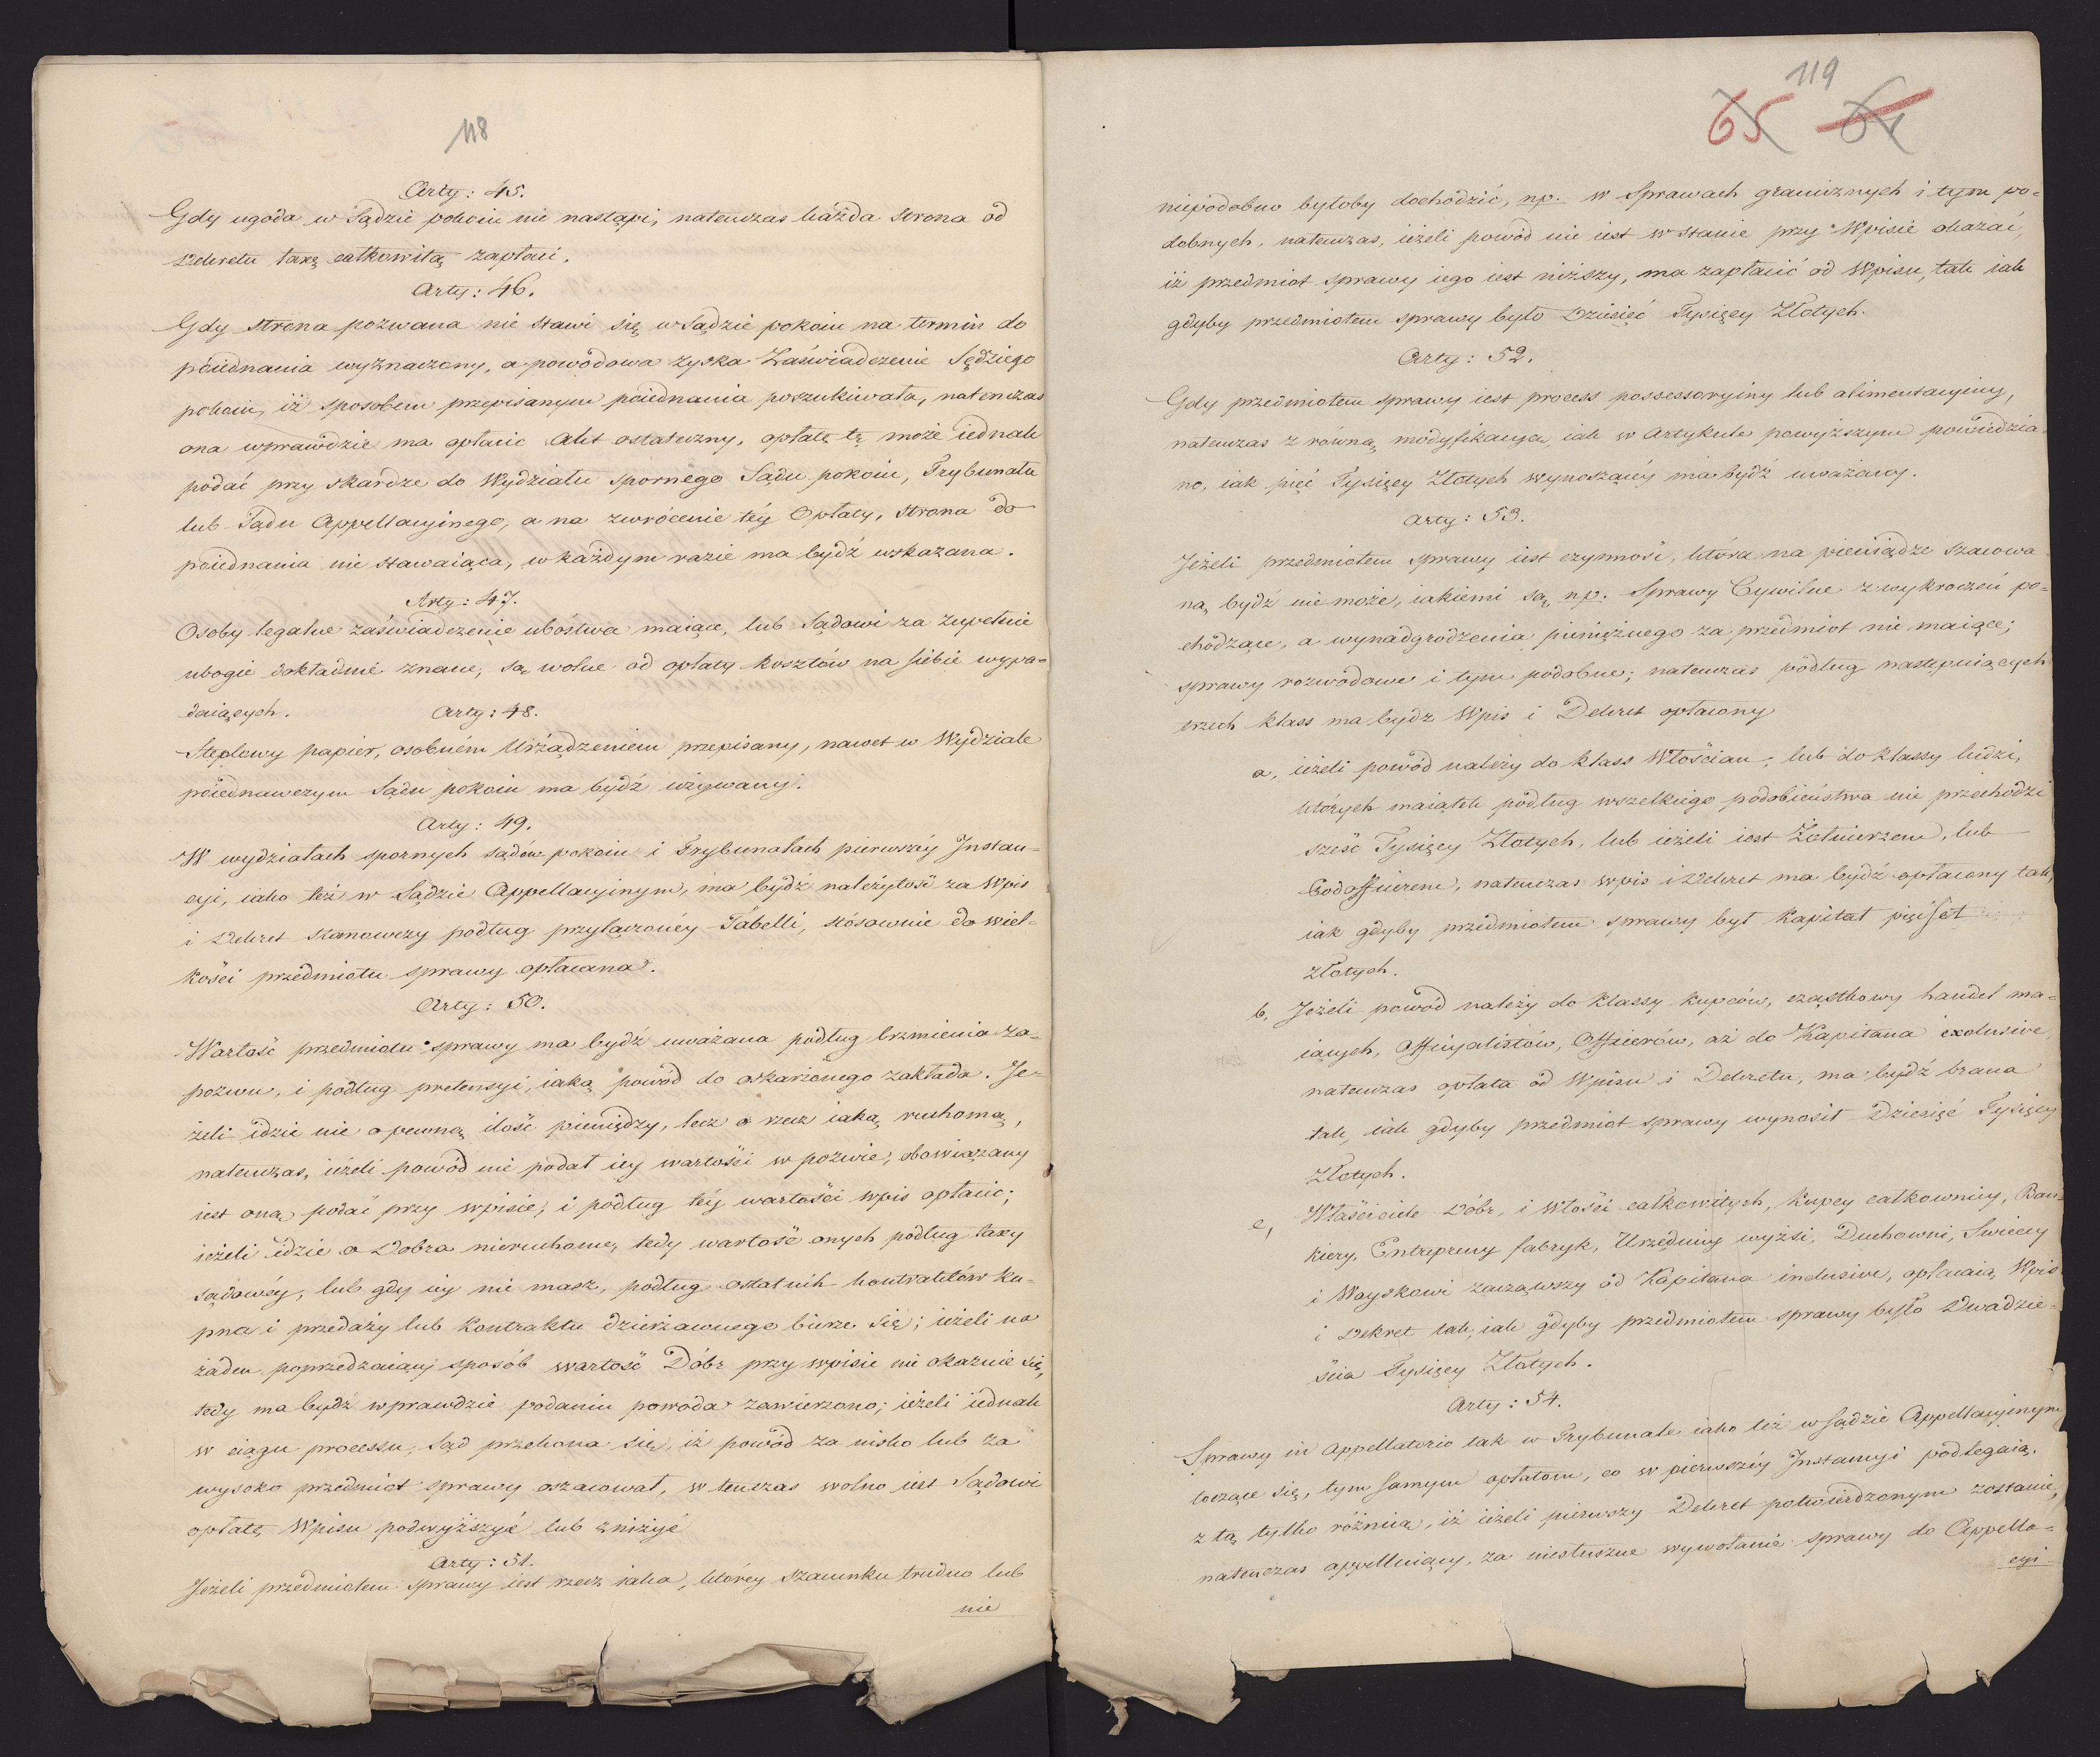 118
Arty: 45.
Gdy ugoda w Sądzie pokoiu nie nastąpi, natenczas każda strona od
Dekretu taxę całkowitą zapłaci.
Arty: 46.
Gdy strona pozwana nie stawi się w Sądzie pokoiu na termin do
poiednania wyznaczony, a powodowa zyska Zaświadczenie Sędziego
pokoiu, iż sposobem przepisanym poiednania poszukiwała, natenczas
ona wprawdzie ma opłacić Akt ostateczny, opłatę tę może iednak
podać przy skardze do Wydziału spornego Sądu pokoiu, Trybunału
lub Sądu Appellacyinego, a na zwrócenie téy Opłaty, strona do
poiednania nie stawaiąca, w każdym razie ma bydź wskazana.
Arty: 47.
Osoby legalne zaświadczenie ubóstwa maiące, lub Sądowi za zupełnie
ubogie dokładnie znane, są wolne od opłaty kosztów na siebie wypa-
daiących.
Arty: 48.
Steplowy papier, osobném Urządzeniem przepisany, nawet w Wydziale
poiednawczym Sądu pokoiu ma bydź używany.
Arty: 49.
W wydziałach spornych sądów pokoiu i Trybunałach pierwszéy Instan-
cyi, iako też w Sądzie Appellacyinym, ma bydź należytość za Wpis
i Dekret stanowczy podług przyłączonéy Tabelli, stósownie do wiel-
kości przedmiotu sprawy opłacana.
Arty: 50.
Wartość przedmiotu sprawy ma bydź uważana podług brzmienia za-
pozwu, i podług pretensyi, iaką powód do oskarżonego zakłada. Je-
żeli idzie nie o pewną ilość pieniędzy, lecz o rzecz iaką ruchomą,
natenczas, ieżeli powód nie podał iey wartości w pozwie, obowiązany
iest oną podać przy wpisie, i podług téy wartości wpis opłacić;
ieżeli idzie o Dobra nieruchome, tedy wartość onych podług taxy
sądowéy, lub gdy iey nie masz, podług ostatnich kontraktów ku-
pna i przedaży lub kontraktu dzierżawnego bierze się; ieżeli na
żaden poprzedzaiący sposób wartość Dóbr przy wpisie nie okazuie się,
tedy ma bydź wprawdzie podaniu powoda zawierzono; ieżeli iednak
w ciągu processu, Sąd przekona się, iż powód za nisko lub za
wysoko przedmiot sprawy oszacował, w tenczas wolno iest Sądowi
opłatę Wpisu podwyższyć lub zniżyć
Arty: 51.
Jeżeli przedmiotem sprawy iest rzecz iaka, którey szacunku trudno lub
nie
119
65 64
niepodobno byłoby dochodzić, np. w Sprawach granicznych i tym po-
dobnych, natenczas, ieżeli powód nie iest w stanie przy Wpisie okazać,
iż przedmiot sprawy iego iest niższy, ma zapłacić od Wpisu, tak iak
gdyby przedmiotem sprawy było Dziesięć Tysięcy Złotych.
Arty: 52.
Gdy przedmiotem sprawy iest process possessoryiny lub alimentacyiny,
natenczas z równą modyfikacyą, iak w Artykule powyższym powiedzia
no, iak pięć Tysięcy Złotych wynoszącéy ma bydź uważany.
Arty: 53.
Jeżeli przedmiotem sprawy iest czynność, która na pieniądze szacowa
ną bydź nie może, iakiemi są np. Sprawy Cywilne z wykroczeń po-
chodzące, a wynadgrodzenia pieniężnego za przedmiot nie maiące;
sprawy rozwodowe i tym podobne; natenczas podług następuiących
trzech klass ma bydź Wpis i Dekret opłacony
a, ieżeli powód należy do klass Włościan, lub do klassy ludzi,
których maiątek podług wszelkiego podobieństwa nie przechodzi
sześć Tysięcy Złotych, lub ieżeli iest Żołnierzem, lub
Podofficerem, natenczas wpis i Dekret ma bydź opłacony tak,
iak gdyby przedmiotem sprawy był Kapitał pięćset
złotych.
b, Jeżeli powód należy do klassy kupców, cząstkowy handel ma-
iących, Officyalistów, Officerów, aż do Kapitana exclusive,
natenczas opłata od Wpisu i Dekretu, ma bydź brana
tak, iak gdyby przedmiot sprawy wynosił Dziesięć Tysięcy
Złotych.
c, Właściciele Dóbr, i Włości całkowitych, Kupcy całkownicy, Ban-
kiery, Entrepreny fabryk, Urzędnicy wyżsi, Duchowni, Swieccy
i Woyskowi zacząwszy od Kapitana inclusive, opłacaią Wpis
i Dekret tak, iak gdyby przedmiotem sprawy było Dwadzie-
ścia Tysięcy Złotych.
Arty: 54.
Sprawy in Appellatorio tak w Trybunale iako też w Sądzie Appellacyinym
toczące się, tym samym opłatom, co w pierwszéy Instancyi podlegaią,
z tą tylko różnicą, iż ieżeli pierwszy Dekret potwierdzonym zostanie,
natenczas appelluiący, za niesłuszne wywołanie sprawy do Appella-
cyi